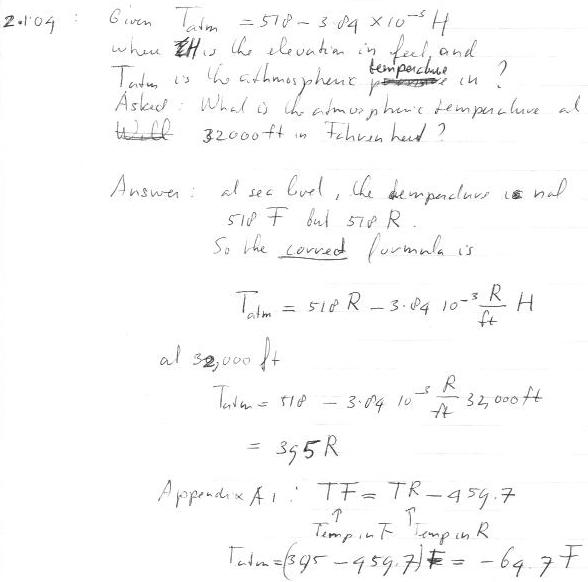 2.1.04 : Given Tatm = 518 - 3.84 x 10⁻³ H
where H is the elevation in feet, and
Tatm is the athmospheric temperature in ?
Asked : What is the atmospheric temperature at
32000 ft in Fahrenheit ?
Answer : at sea level, the temperature is not
518 F but 518 R.
So the correct formula is
Tatm = 518 R - 3.84 10⁻³ R/ft H
at 32,000 ft
Tatm = 518 - 3.84 10⁻³ R/ft 32,000 ft
= 395 R
Appendix A1 : TF = TR - 459.7
↑ ↑
Temp in F Temp in R
Tatm = (395 - 459.7) F = -64.7 F